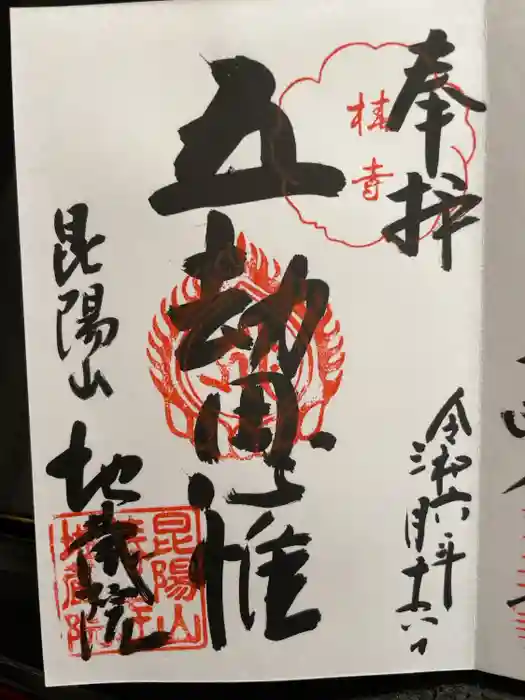 奉拝
椿寺
令和六年
三月十六日
五劫思惟
昆陽山
地蔵院
昆陽山
地蔵院